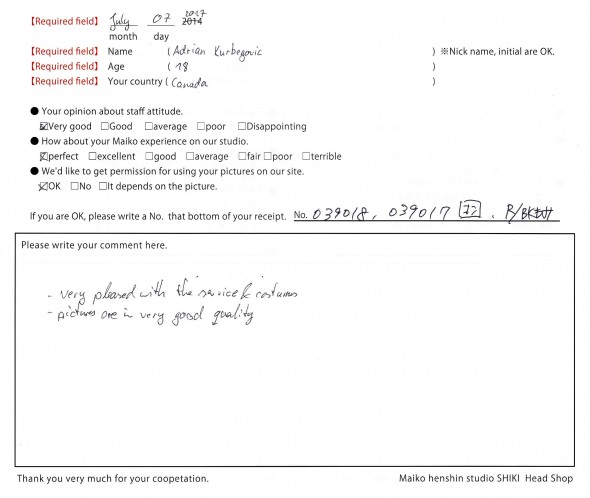 【Required field】 July 07 2017 2014
month day
【Required field】 Name ( Adrian Kurbegovic ) ※Nick name, initial are OK.
【Required field】 Age ( 18 )
【Required field】 Your country ( Canada )
● Your opinion about staff attitude.
☒Very good □Good □average □poor □Disappointing
● How about your Maiko experience on our studio.
☒perfect □excellent □good □average □fair □poor □terrible
● We'd like to get permission for using your pictures on our site.
☒OK □No □It depends on the picture.
If you are OK, please write a No. that bottom of your receipt. No. 039018, 039017
Please write your comment here.
- very pleased with the service & costums
- pictures are in very good quality
Thank you very much for your coopetation. Maiko henshin studio SHIKI Head Shop